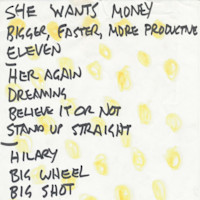 SHE WANTS MONEY
BIGGER, FASTER, MORE PRODUCTIVE
ELEVEN
HER AGAIN
DREAMING
BELIEVE IT OR NOT
STAND UP STRAIGHT
HILARY
BIG WHEEL
BIG SHOT